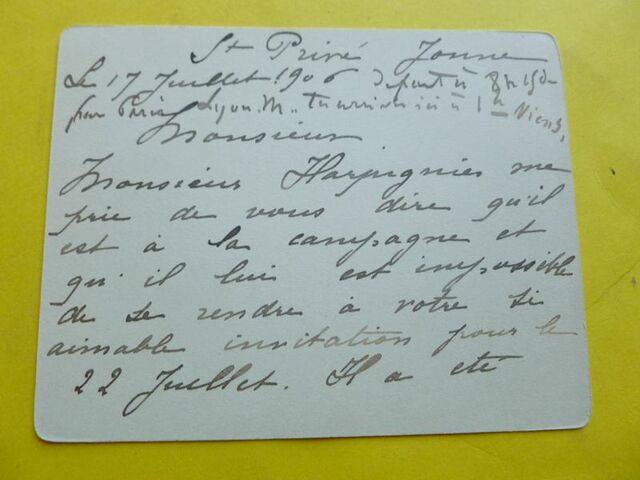 St Privé Yonne
Le 17 Juillet 1906 Départ à 8h 15
pour Paris Lyon. M. tu arriveras ici à 1h Viens,
Monsieur
Monsieur Harpignies me
prie de vous dire qu'il
est à la campagne et
qu'il lui est impossible
de se rendre à votre si
aimable invitation pour le
22 Juillet. Il a été